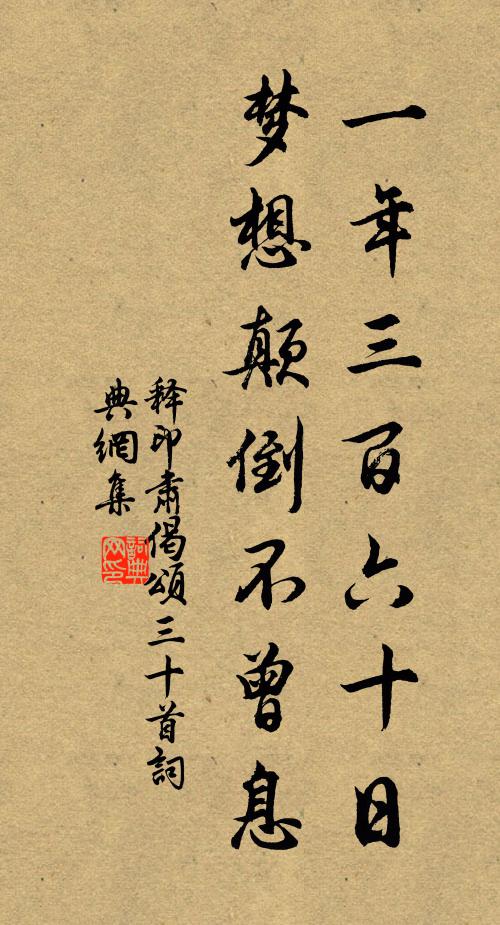 一年三百六十日
梦想颠倒不曾息
释印肃偈颂三十首詞
典網集
詞典
网印